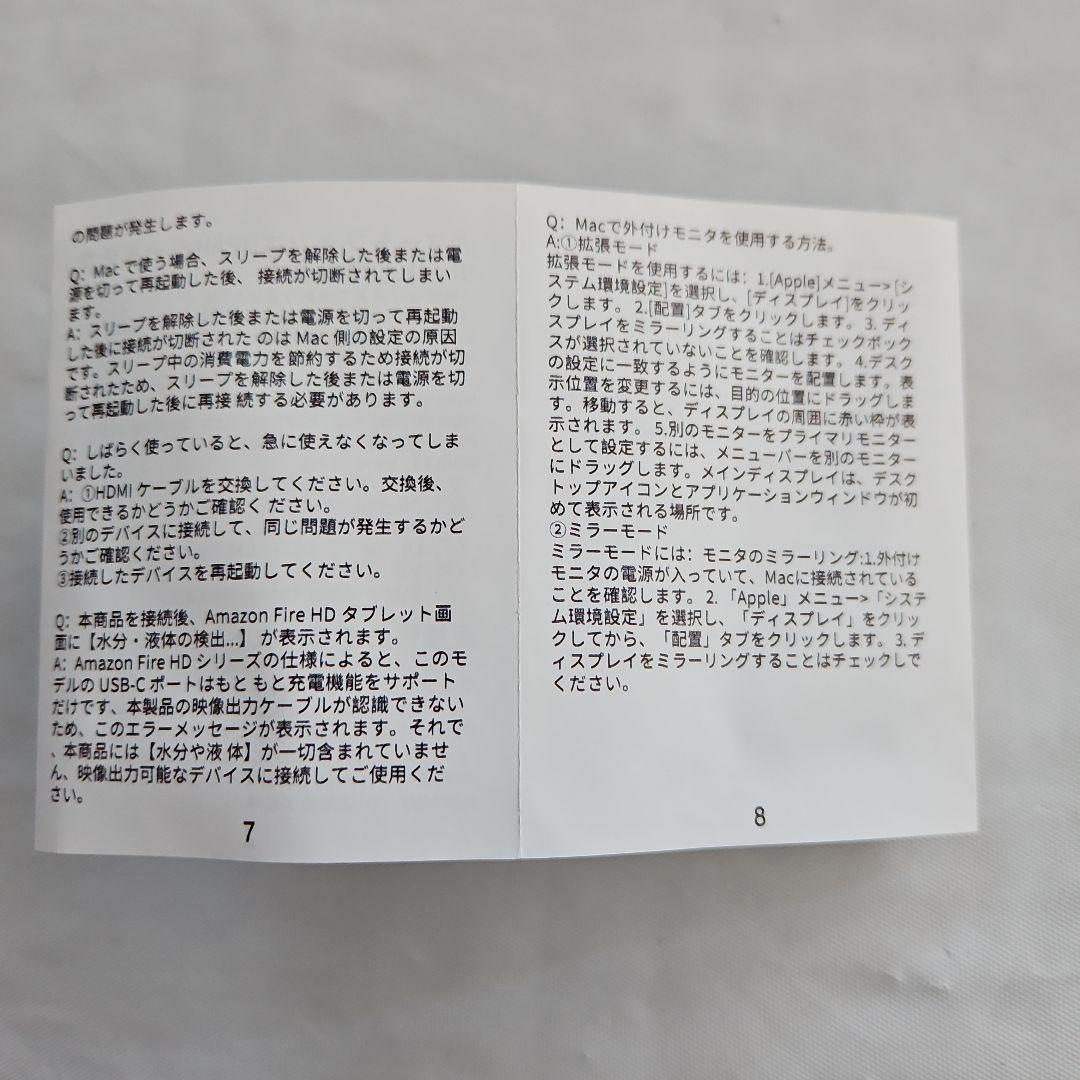 の問題が発生します。
Q：Mac で使う場合、スリープを解除した後または電
源を切って再起動した後、 接続が切断されてしまい
ます。
A：スリープを解除した後または電源を切って再起動
した後に接続が切断された のは Mac 側の設定の原因
です。スリープ中の消費電力を節約するため接続が切
断されたため、スリープを解除した後または電源を切
って再起動した後に再接 続する必要があります。
Q：しばらく使っていると、急に使えなくなってしま
いました。
A：①HDMI ケーブルを交換してください。交換後、
使用できるかどうかご確認く ださい。
②別のデバイスに接続して、同じ問題が発生するかど
うかご確認ください。
③接続したデバイスを再起動してください。
Q：本商品を接続後、Amazon Fire HD タブレット画
面に【水分・液体の検出...】 が表示されます。
A：Amazon Fire HD シリーズの仕様によると、このモ
デルの USB-C ポートはもと もと充電機能をサポート
だけです、本製品の映像出力ケーブルが認識できない
ため、このエラーメッセージが表示されます。それで
、本商品には【水分や液 体】が一切含まれていませ
ん、映像出力可能なデバイスに接続してご使用くだ
さい。
7
Q：Macで外付けモニタを使用する方法。
A:①拡張モード
拡張モードを使用するには：1.[Apple]メニュー> [シ
ステム環境設定]を選択し、[ディスプレイ]をクリッ
クします。 2.[配置]タブをクリックします。 3. ディ
スプレイをミラーリングすることはチェックボック
スが選択されていないことを確認します。 4.デスク
の設定に一致するようにモニターを配置します。表
示位置を変更するには、目的の位置にドラッグしま
す。移動すると、ディスプレイの周囲に赤い枠が表
示されます。 5.別のモニターをプライマリモニター
として設定するには、メニューバーを別のモニター
にドラッグします。メインディスプレイは、デスク
トップアイコンとアプリケーションウィンドウが初
めて表示される場所です。
②ミラーモード
ミラーモードには：モニタのミラーリング:1.外付け
モニタの電源が入っていて、Macに接続されている
ことを確認します。 2. 「Apple」メニュー>「システ
ム環境設定」を選択し、「ディスプレイ」をクリッ
クしてから、「配置」タブをクリックします。 3.デ
ィスプレイをミラーリングすることはチェックしで
ください。
8